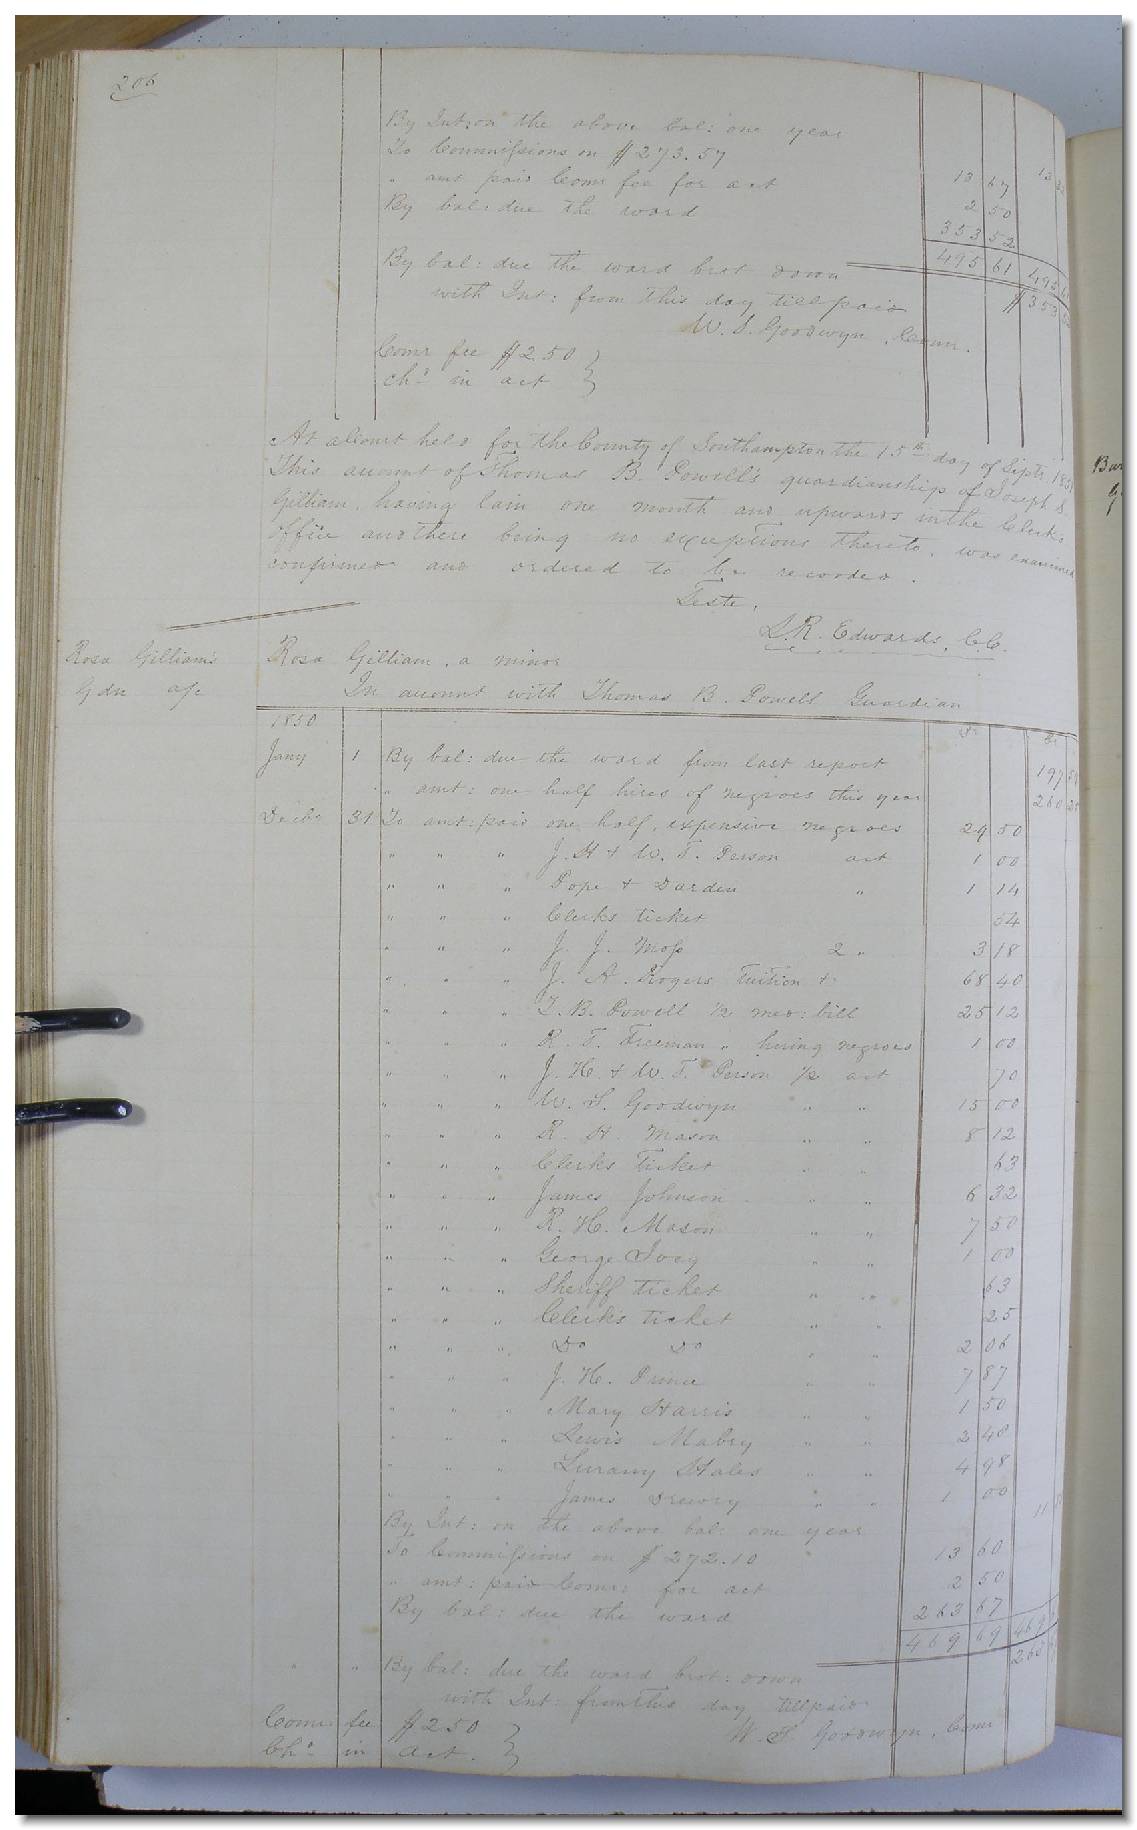 206
By Int: on the above bal: one year
To Commissions on $273.57 13 67
" amt paid Comr fee for act 2 50
By bal: due the ward 353 52
495 61
By bal: due the ward brot down
with Int: from this day till paid $353
W. S. Goodwyn, Comr.
Comr fee $2.50
chd in act
At a Court held for the County of Southampton the 15th day of Septr 1851
This account of Thomas B. Powell's guardianship of Joseph S.
Gilliam, having lain one month and upwards in the Clerks
office and there being no exceptions thereto, was examined
confirmed and ordered to be recorded.
Teste,
L. R. Edwards, C.C.
Rosa Gilliam's
Gdn a/c
Rosa Gilliam, a minor
In account with Thomas B. Powell Guardian
1850 Dr Cr
Jany 1 By bal: due the ward from last report 197
" amt: one half hires of negroes this year 260
Decbr 31 To amt: paid one half, expensive negroes 29 50
" " " J. H & W. T. Person act 1 00
" " " Pope & Darden " 1 14
" " " Clerks ticket 54
" " " J. J. Moss 2 " 3 18
" " " J. A. Rogers Tuition & 68 40
" " " T. B. Powell 1/2 med: bill 25 12
" " " R. T. Freeman " hiring negroes 1 00
" " " J. H. & W. T. Person 1/2 act 70
" " " W. S. Goodwyn " " 15 00
" " " R. H. Mason " " 8 12
" " " Clerks Ticket " " 63
" " " James Johnson " " 6 32
" " " R. H. Mason " " 7 50
" " " George Ivey " " 1 00
" " " Sheriff ticket " " 63
" " " Clerk's ticket " " 25
" " " Do Do " " 2 06
" " " J. H. Prince " " 7 87
" " " Mary Harris " " 1 50
" " " Lewis Mabry " " 2 48
" " " Lurany Hales " " 4 98
" " " James Drewry " " 1 00
By Int: on the above bal: one year 11
To Commissions on $272.10 13 60
" amt: paid Comr: for act 2 50
By bal: due the ward 263 67
469 69 469
" " By bal: due the ward brot: down 263
with Int: from this day till paid
W. S. Goodwyn, Comr
Comr fee $2 50
Chd in act.